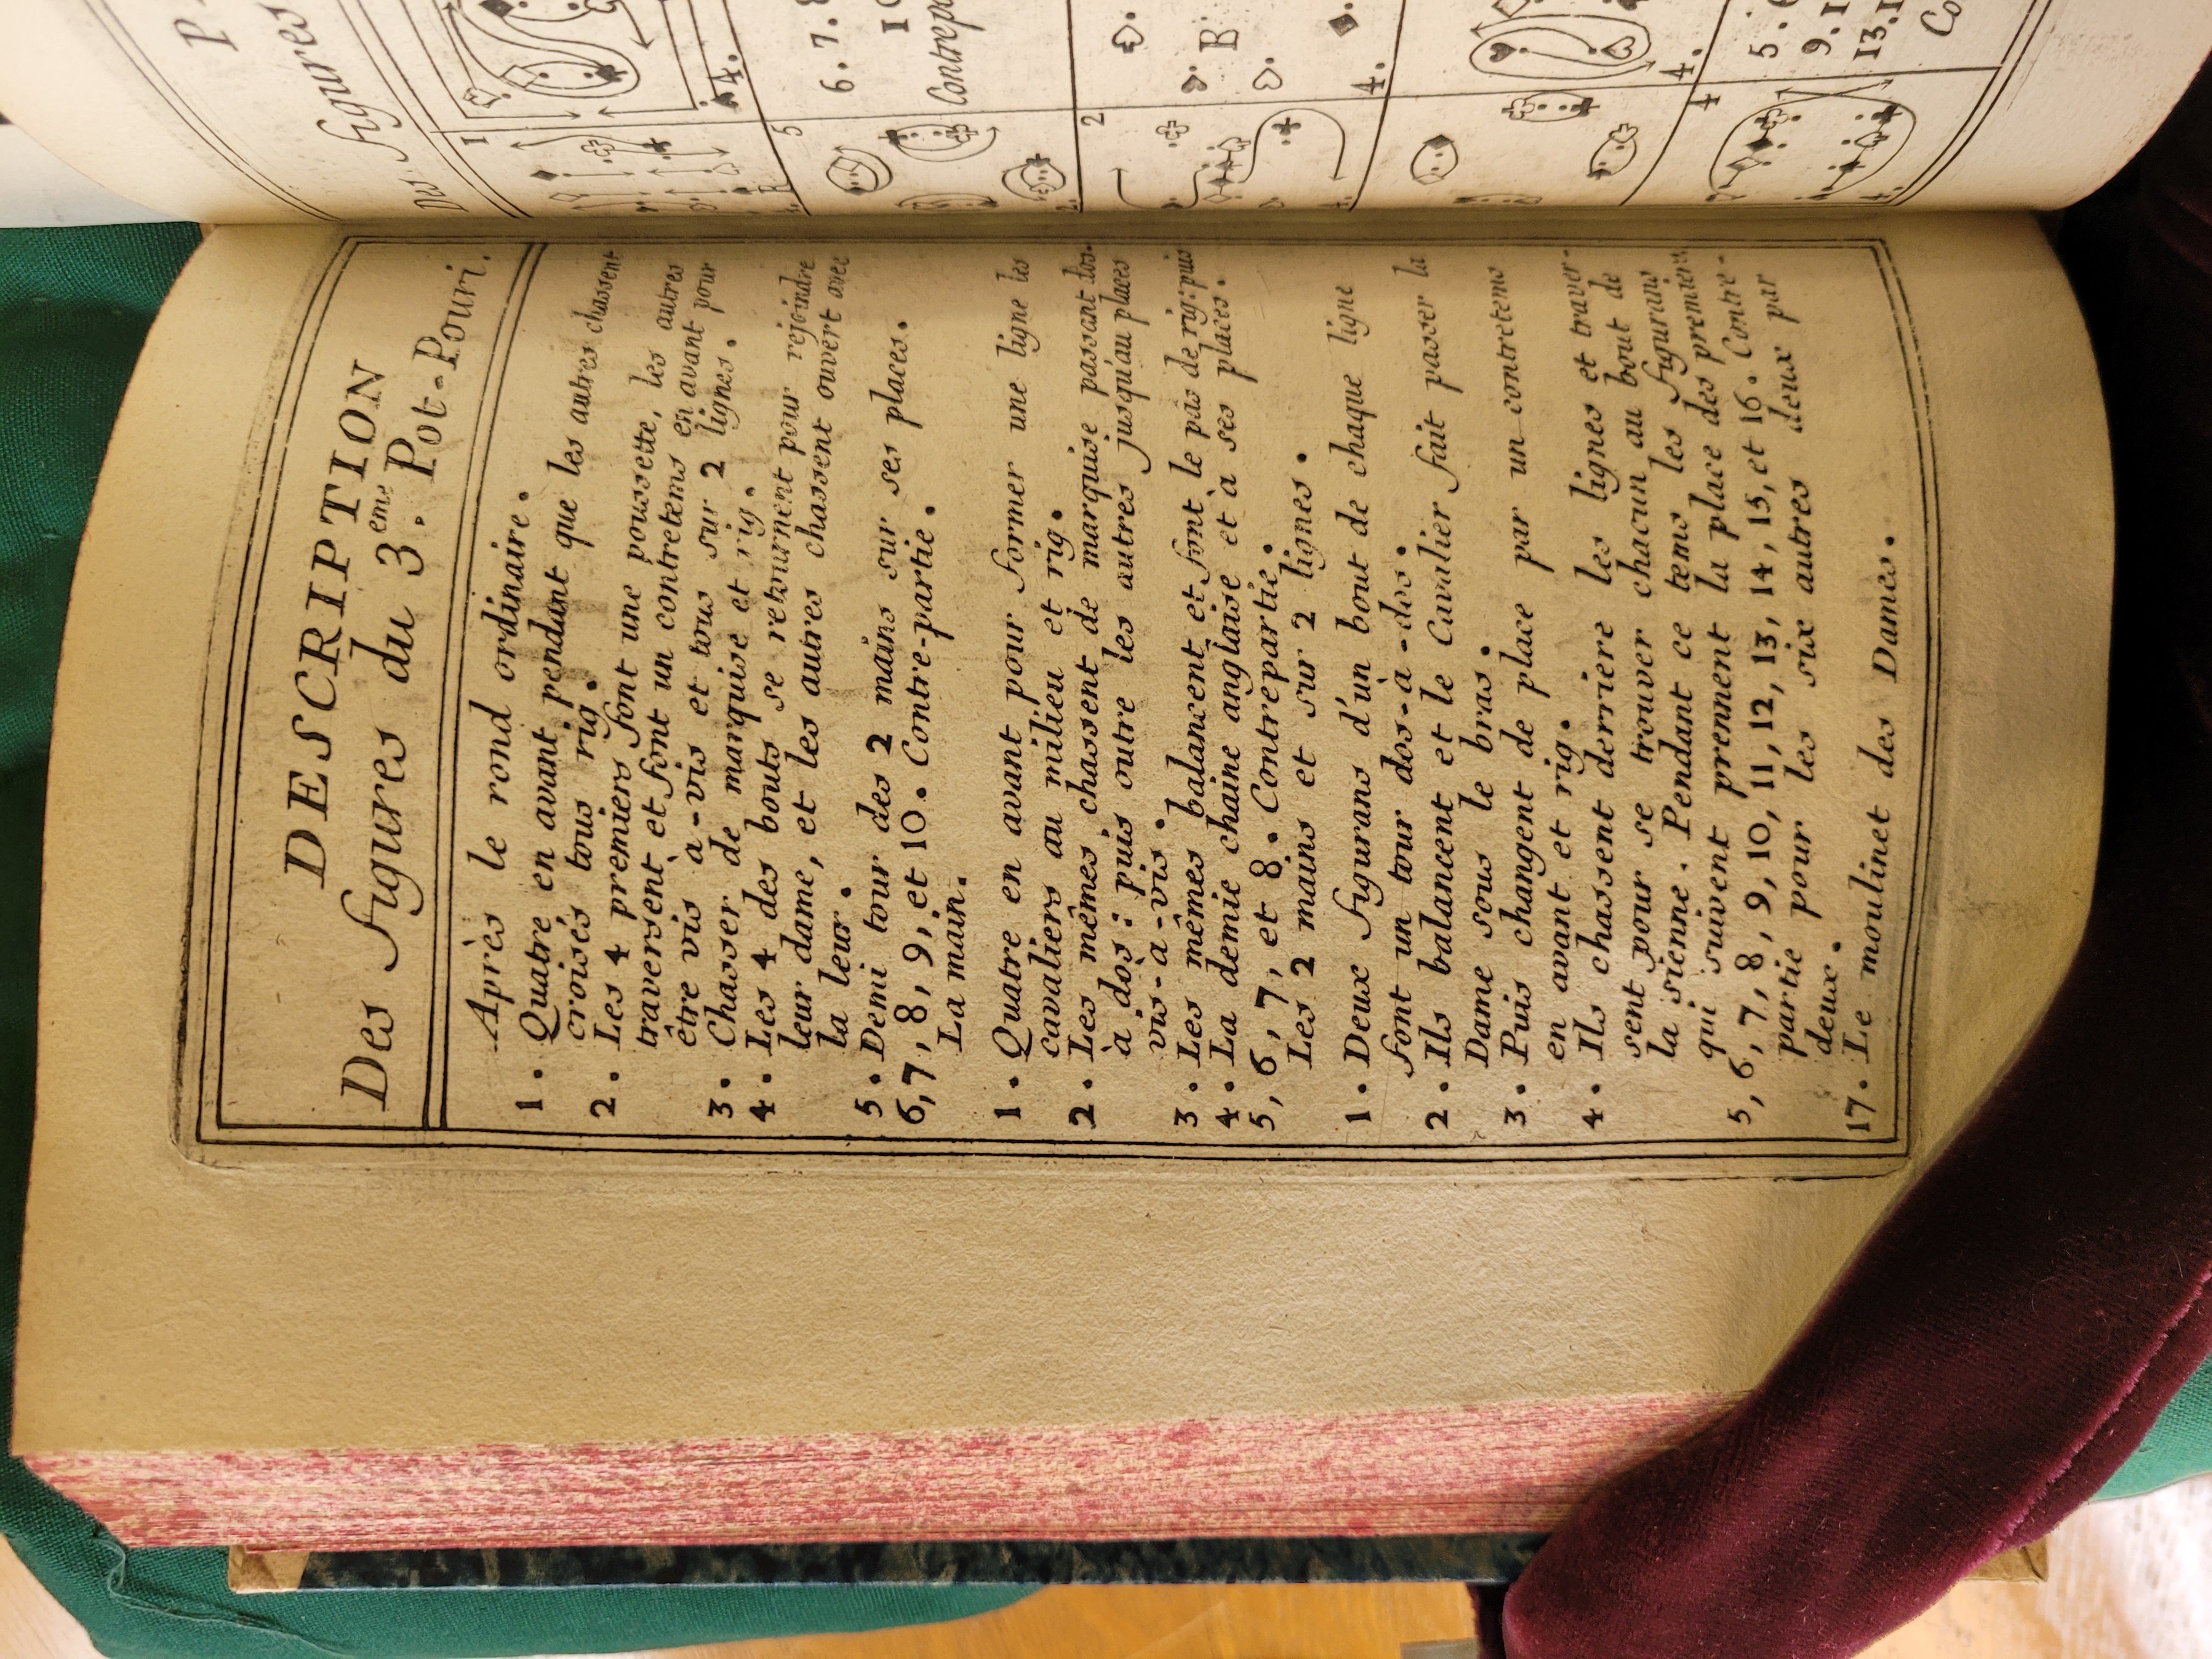 DESCRIPTION
Des figures du 3.eme Pot-Pouri.
Après le rond ordinaire.
1. Quatre en avant pendant que les autres chassent
croisés tous rig.
2. Les 4 premiers font une poussette, les autres
traversent et font un contretems en avant pour
être vis à-vis et tous sur 2 lignes.
3. Chasser de marquise et rig.
4. Les 4 des bouts se retournent pour rejoindre
leur dame, et les autres chassent ouvert avec
la leur.
5. Demi tour des 2 mains sur ses places.
6, 7, 8, 9, et 10. Contre-partie.
La main.
1. Quatre en avant pour former une ligne les
cavaliers au milieu et rig.
2. Les mêmes chassent de marquise passant dos-
à dos : puis outre les autres jusqu'au places
vis-à-vis.
3. Les mêmes balancent et font le pas de rig: puis
4. La demie chaine anglaise et à ses places.
5, 6, 7, et 8. Contrepartie.
Les 2 mains et sur 2 lignes.
1. Deux figurans d'un bout de chaque ligne
font un tour dos-à-dos.
2. Ils balancent et le Cavalier fait passer la
Dame sous le bras.
3. Puis changent de place par un contretems
en avant et rig.
4. Ils chassent derriere les lignes et traver-
sent pour se trouver chacun au bout de
la sienne. Pendant ce tems les figurans
qui suivent prennent la place des premiers
5, 6, 7, 8, 9, 10, 11, 12, 13, 14, 15, et 16. Contre-
partie pour les six autres deux par
deux.
17. Le moulinet des Dames.
Des figures
1
4.
5
6. 7.
2
B
4.
4.
4
5.
9.
13.